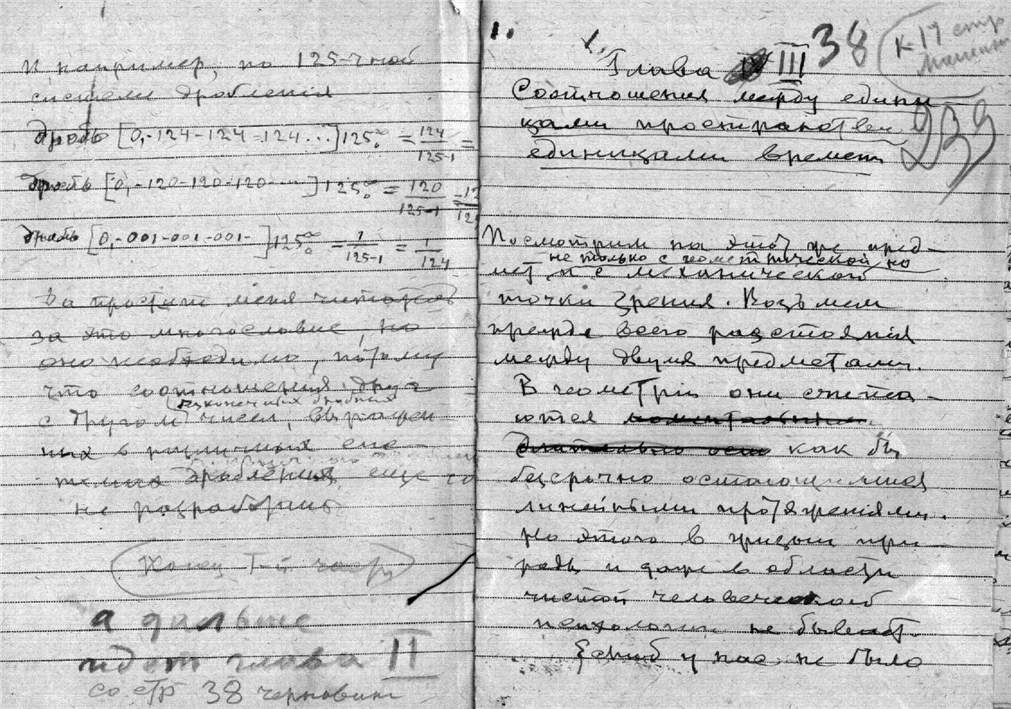 И, например, по 125-чной
системе дробления
дробь [0,-124-124-124...]125 = 124/125-1 =
дробь [0,-120-120-120-...]125 = 120/125-1 =
дробь [0,-001-001-001-]125 = 1/125-1 = 1/124
Да простит меня читатель
за это многословие, но
оно необходимо, потому
что соотношения друг
бесконечных дробных
с другом чисел, выражен
ных в различных сис-
темах дробления, еще
не разработаны
Конец I-й части
а дальше
идет глава II
со стр 38 черновика
1.
1.
38
К 17 стр
239
Глава III
Соотношения между едини
цами пространствен.
единицами времени
Посмотрим на этот же пред-
не только с геометрической но
мет и с механической
точки зрения. Возьмем
прежде всего разстояния
между двумя предметами.
В геометрии они счита-
ются
как бы
безсрочно остающимися
линейными протяжениями.
Но этого в жизни при
роды и даже в области
чистой человеческой
психологии не бывает.
Если б у нас не было